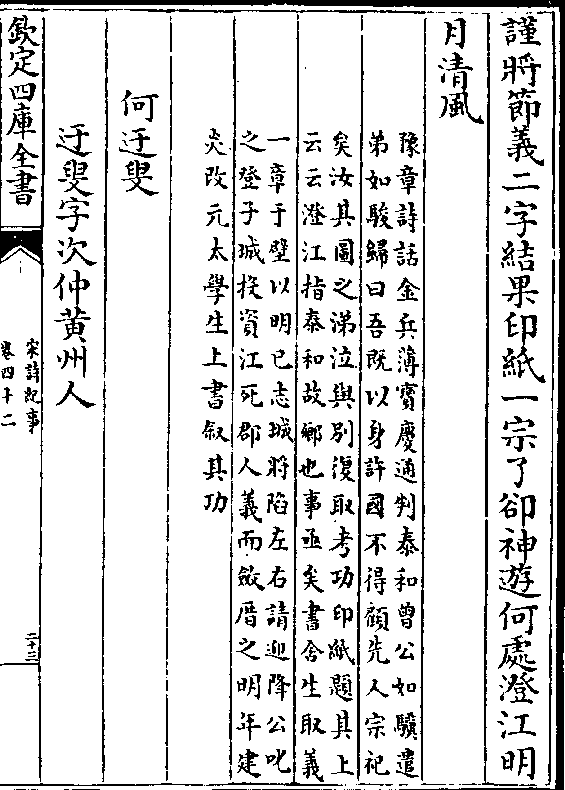 謹將節義二字結果印紙一宗了卻神遊何處澄江明
月清風
豫章詩話金兵薄寳慶通判泰和曾公如驥遣
弟如駿歸曰吾既以身許國不得顧先人宗祀
矣汝其圖之涕泣與别復取考功印紙題其上
云云澄江指泰和故鄉也事亟矣書舍生取義
一章于壁以明已志城將陷左右請迎降公叱
之登子城投資江死郡人義而斂厝之明年建
炎改元太學生上書叙其功
何迂叟
迂叟字次仲黄州人
欽定四庫全書
宋詩紀事
卷四十二
二十三